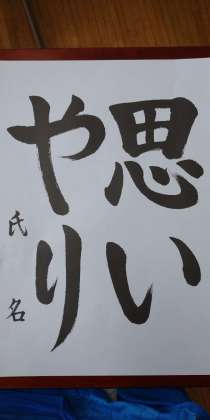 思い
やり
氏名